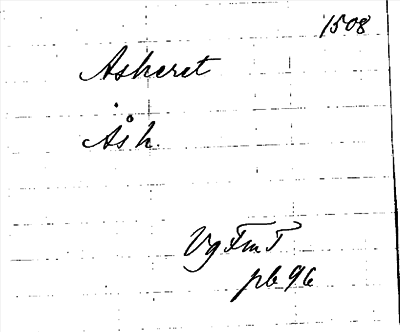 1508
Asheret
Ås h.
Vg Fm T
pb 96